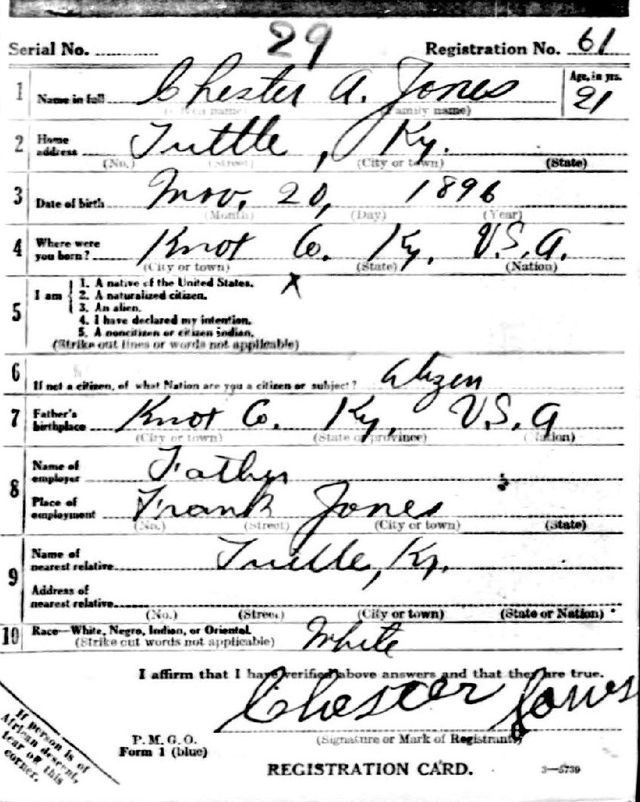 Serial No. 29 Registration No. 61
1 Name in full Chester A. Jones Age, in yrs. 21
(Given name) (Family name)
2 Home address Tuttle, Ky.
(No.) (Street) (City or town) (State)
3 Date of birth Nov. 20, 1896
(Month) (Day) (Year)
4 Where were you born? Knot Co. Ky. U.S.A.
(City or town) (State) (Nation)
5 I am
1. A native of the United States. X
2. A naturalized citizen.
3. An alien.
4. I have declared my intention.
5. A noncitizen or citizen indian.
(Strike out lines or words not applicable)
6 If not a citizen, of what Nation are you a citizen or subject? Citizen
7 Father's birthplace Knot Co. Ky, U.S.A
(City or town) (State or province) (Nation)
8 Name of employer
Place of employment Frank Jones
(No.) (Street) (City or town) (State)
9 Name of nearest relative Ky.
Address of nearest relative
(No.) (Street) (City or town) (State or Nation)
10 Race—White, Negro, Indian, or Oriental. White
(Strike out words not applicable)
I affirm that I have verified above answers and that they are true.
Chester Jones
P. M. G. O. (Signature or Mark of Registrant)
Form 1 (blue)
REGISTRATION CARD. 3—5739
If person is of
African descent,
tear off this
corner.